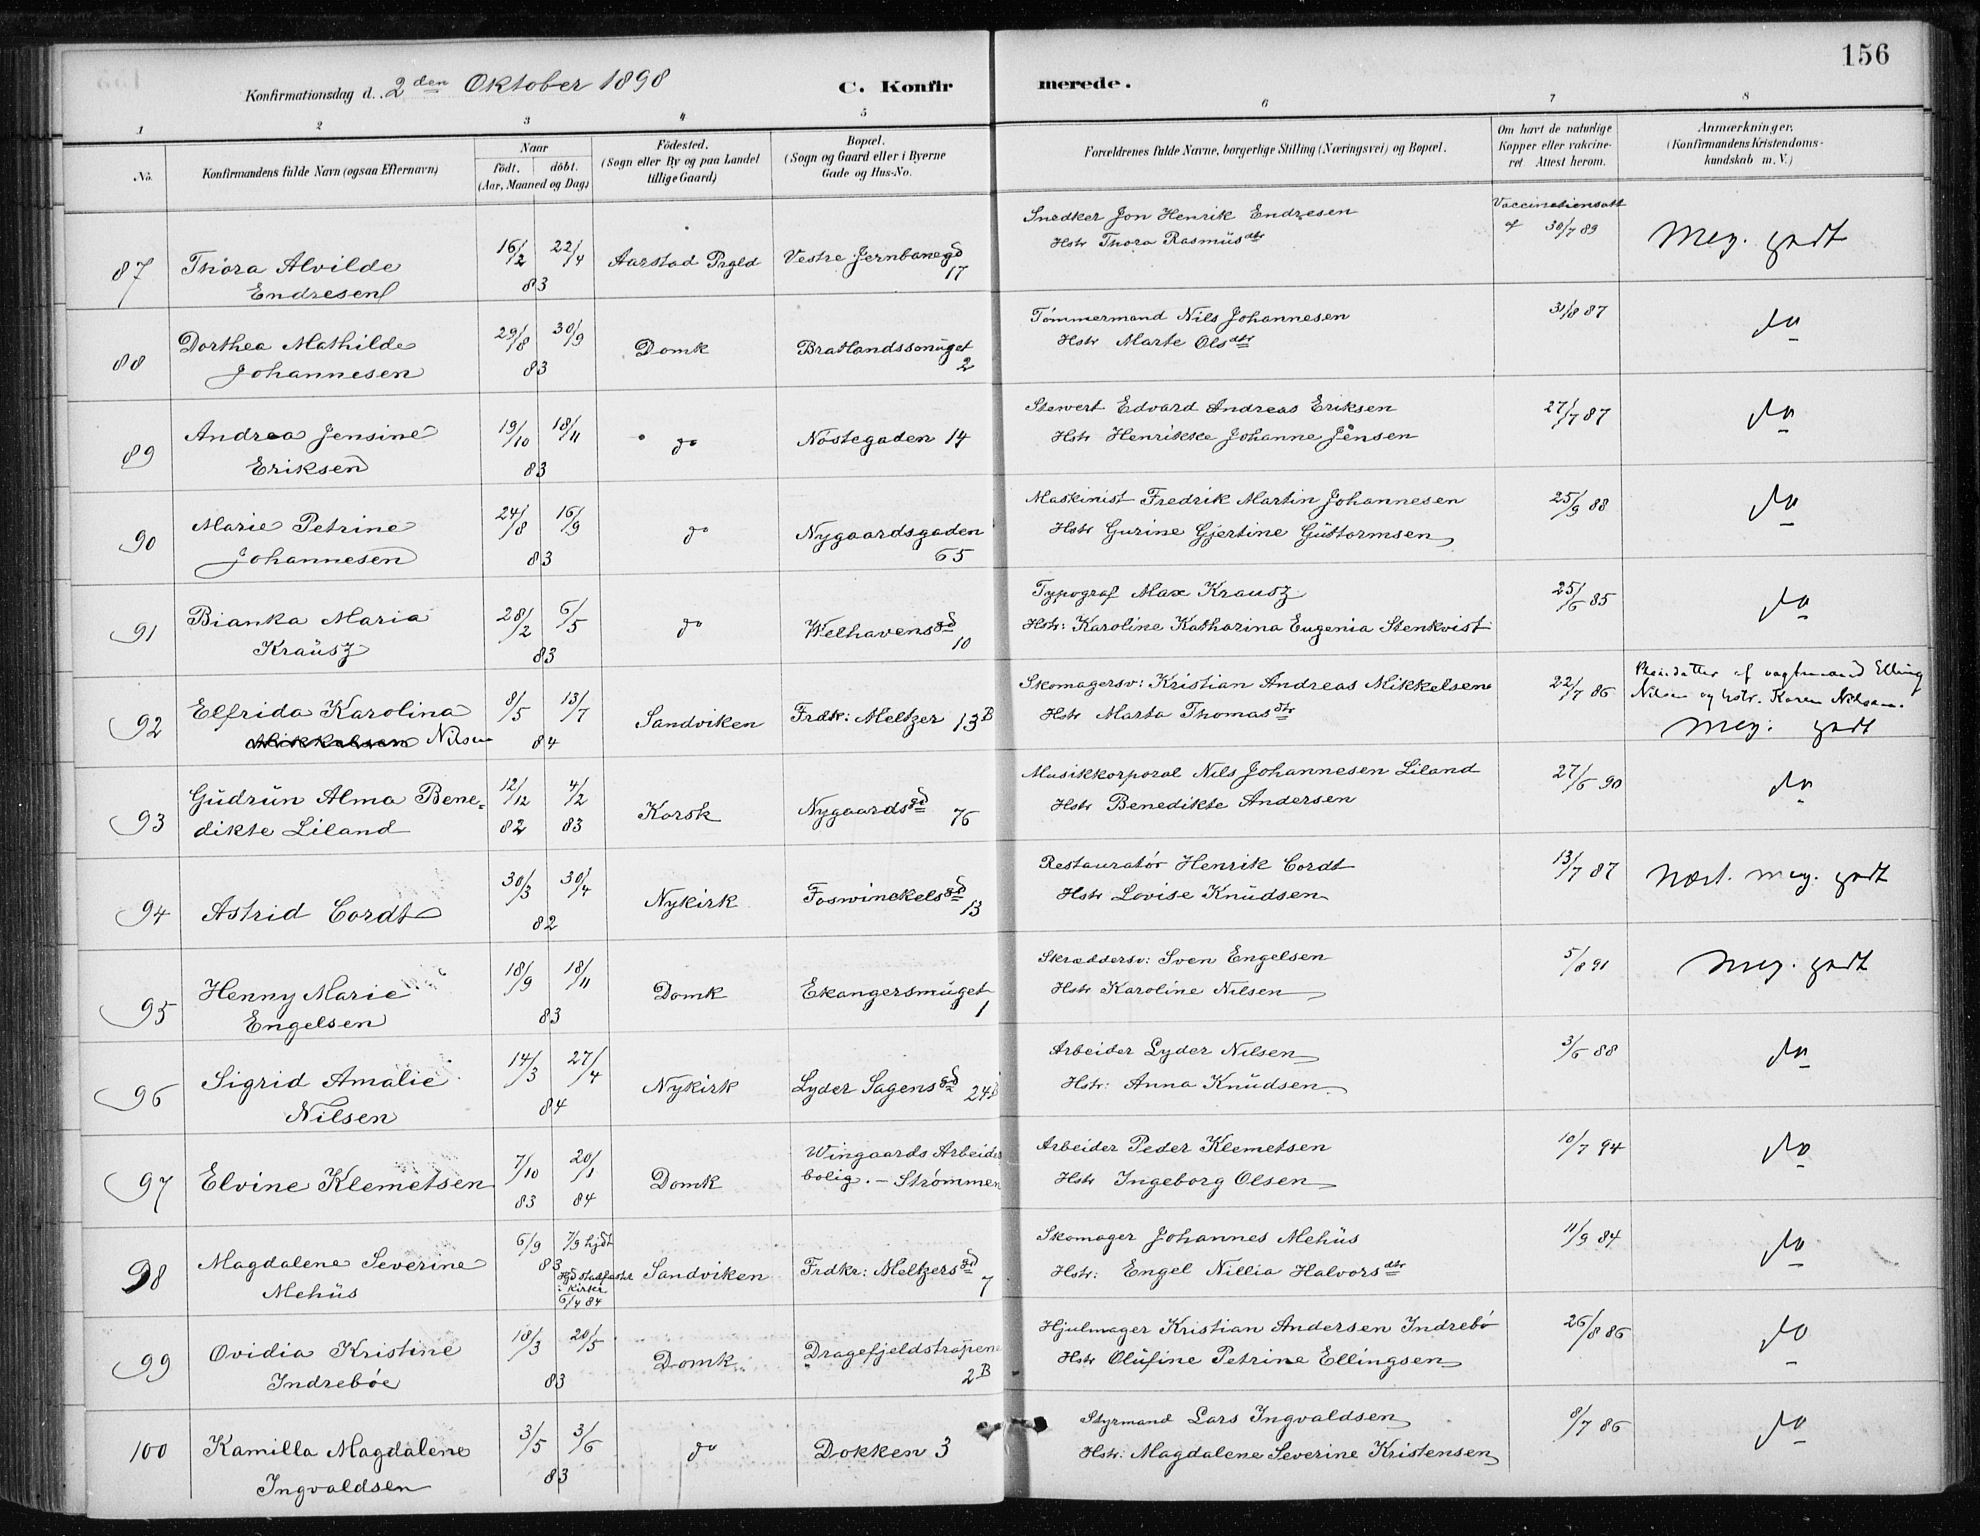 156
Konfirmationsdag d. 2den Oktober 1898
C. Konfir merede.
1 2 3 4 5 6 7 8
No.
Konfirmandens fulde Navn (ogsaa Efternavn)
Naar
födt. döbt.
(Aar, Maaned og Dag)
Födested.
(Sogn eller By og paa Landet
tillige Gaard)
Bopæl.
(Sogn og Gaard eller i Byerne
Gade og Hus-No.
Forældrenes fulde Navne, borgerlige Stilling (Næringsvei) og Bopæl.
Om havt de naturlige
Kopper eller vakcine-
ret. Attest herom.
Anmærkninger.
(Konfirmandens Kristendoms-
kundskab m. V.)
87 Thora Alvilde
Endresen
16/2 22/4
83
Aarstad Prgld
Vestre Jernbanegd
17
Snedker Jon Henrik Endresen
Hstr Thora Rasmusdtr
Vaccinationsatt
af 30/7 89
Meg. godt
88 Dorthea Mathilde
Johannesen
29/8 30/9
83
Domk
Bratlandssmuget
2
Tømmermand Nils Johannesen
Hstr Marte Olsdtr
31/8 87
do
89 Andrea Jensine
Eriksen
19/10 18/11
83
do
Nöstegaden 14
Stewert Edvard Andreas Eriksen
Hstr Henrikke Johanne Jensen
27/7 87
do
90 Marie Petrine
Johannesen
24/8 16/9
83
do
Nygaardsgaden
65
Maskinist Fredrik Martin Johannesen
Hstr Gurine Gjertine Guttormsen
25/9 88
do
91 Bianka Maria
Krausz
28/2 6/5
83
do
Welhavensgd
10
Typograf Max Krausz
Hstr: Karoline Katharina Eugenia Stenkvist
25/6 85
do
92 Elfrida Karolina
Mikkelsen Nilsen
8/5 13/7
84
Sandviken
Frdk: Meltzer 13B
Skomagersv: Kristian Andreas Mikkelsen
Hstr Marta Thomasdtr
22/7 86
Pleiedatter af vagtmand Elling
Nilsen og hstr. Karen Nilsen.
Meg. godt
93 Gudrun Alma Bene-
dikte Liland
12/12 4/2
82 83
Korsk
Nygaardsgd
76
Musikkorporal Nils Johannesen Liland
Hstr Benedikte Andersen
27/6 90
do
94 Astrid Cordt
30/3 30/4
82
Nykirk
Foswinckelsgd
13
Restauratør Henrik Cordt
Hstr Lovise Knudsen
13/7 87
Næst. meg. godt
95 Henny Marie
Engelsen
18/9 18/11
83
Domk
Ekangersmuget
1
Skræddersv: Sven Engelsen
Hstr Karoline Nilsen
5/8 91
Meg. godt
96 Sigrid Amalie
Nilsen
14/3 27/4
84
Nykirk
Lyder Sagensgd 24B
Arbeider Lyder Nilsen
Hstr: Anna Knudsen
3/6 88
do
97 Elvine Klemetsen
7/10 20/1
83 84
Domk
Wingaards Arbeider
bolig. - Strømmen
Arbeider Peder Klemetsen
Hstr Ingeborg Olsen
10/7 94
do
98 Magdalene Severine
Mehus
6/9 7/9 hjdt
83
Hjd stadfæstet
i Kirken
6/4 84
Sandviken
Frdkr: Meltzersgd
7
Skomager Johannes Mehus
Hstr: Engel Nillia Halvorsdtr
11/9 84
do
99 Ovidia Kristine
Indrebøe
18/3 20/5
83
Domk
Dragefjeldstrapene
2B
Hjulmager Kristian Andersen Indrebø
Hstr Olufine Petrine Ellingsen
26/8 86
do
100 Kamilla Magdalene
Ingvaldsen
3/5 3/6
83
do
Dokken 3
Styrmand Lars Ingvaldsen
Hstr: Magdalene Severine Kristensen
8/7 86
do